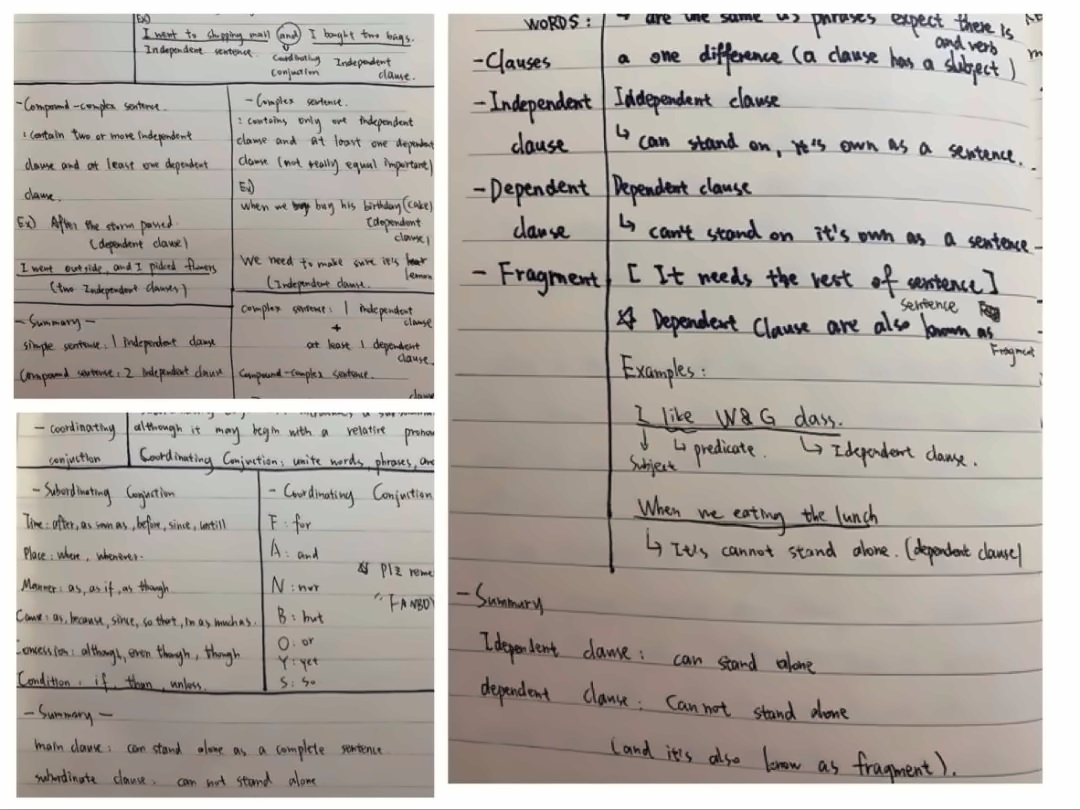 Ex)
I went to shopping mall (and) I bought two bags.
Independent sentence.
Coordinating
conjuction
Independent
clause.
- Compound-complex sentence.
: contain two or more independent
clause and at least one dependent
clause.
Ex) After the storm passed.
(dependent clause)
I went outside, and I picked flowers
(two Independent clauses)
- Summary -
simple sentence: 1 independent clause
Compound sentence: 2 Independent clause
- Complex sentence.
: contains only one independent
clause and at least one dependent
clause (not really equal important)
Ex)
when we buy his birthday (cake)
(dependent
clause)
We need to make sure it's
lemon
(Independent clause.
complex sentence: 1 independent
clause
+
at least 1 dependent
clause.
Compound-complex sentence.
- coordinating
conjuction
although it may begin with a relative pronou
Coordinating Conjuction: unite words, phrases, and
- Subordinating Conjuction
Time: after, as soon as, before, since, untill
Place: where, whenever.
Manner: as, as if, as though
Cause: as, because, since, so that, in as much as.
Concession: although, even though, though
Condition: if, than, unless.
- Coordinating Conjuction
F: for
A: and
N: nor
B: but
O: or
Y: yet
S: so
☆ Plz reme
"FANBO
- Summary -
main clause: can stand alone as a complete sentence
subordinate clause. can not stand alone
WORDS:
- Clauses
- Independent
clause
- Dependent
clause
- Fragment
↳ are the same as phrases expect there is
a one difference (a clause has a subject and verb)
Iddependent clause
↳ can stand on, it's own as a sentence.
Dependent clause
↳ can't stand on it's own as a sentence
[ It needs the rest of sentence]
☆ Dependent Clause are also known as
sentence
Fragment
Examples:
I like W&G class.
Subject
↳ predicate.
↳ Idependent clause.
When we eating the lunch
↳ It's cannot stand alone. (dependent clause)
- Summary
Idependent clause: can stand alone
dependent clause: Can not stand alone
(and it's also know as fragment).